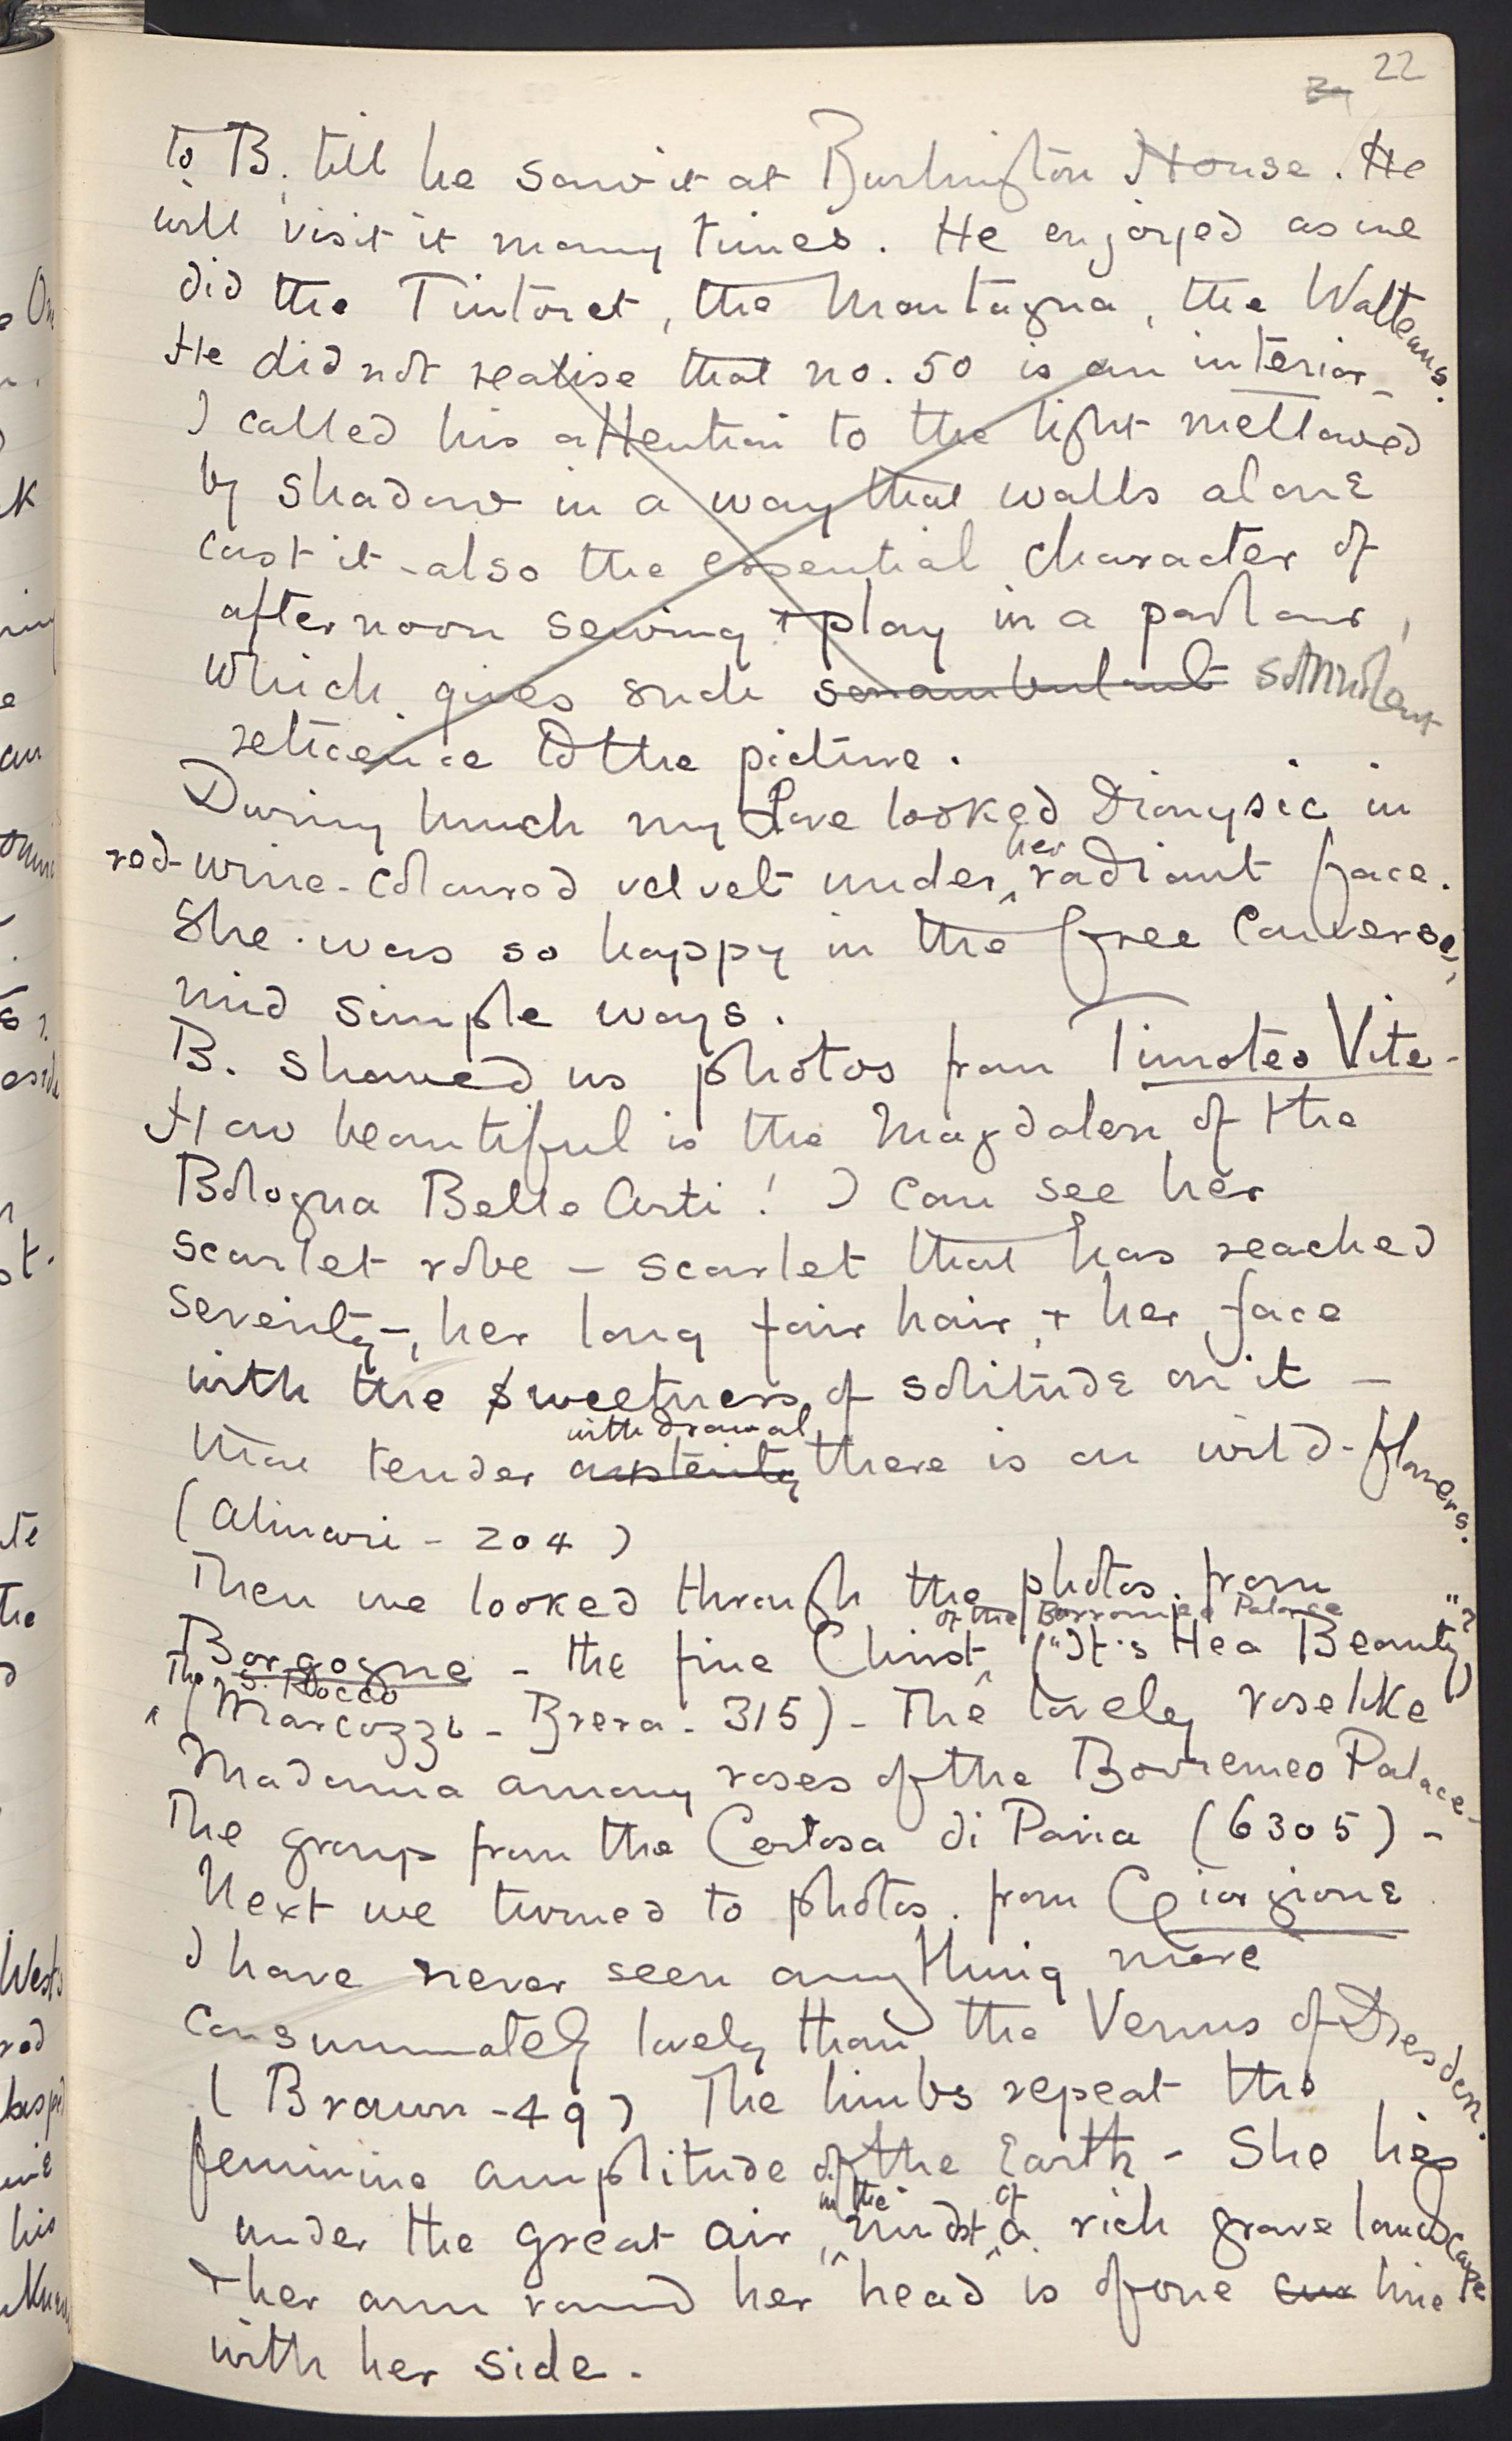 22
to B. till he saw it at Burlington House. He
will visit it many times. He enjoyed as we
did the Tintoret, the Montagna, the Watteaus.
He did not realise that no. 50 is an interior_
I called his attention to the light mellowed
by shadow in a way that walls alone
cast it - also the essential character of
afternoon sewing + play in a parlour,
which gives such somnambulant somnolent
reticence to the picture.
During lunch my Love looked Dionysic in
red-wine-coloured velvet under her radiant face.
She was so happy in the free converse,
mid simple ways.
B. showed us photos from Timoteo Vite -
How beautiful is the Magdalen of the
Bologna Belle Arti! I can see her
scarlet robe - scarlet that has reached
serenity -, her long fair hair, + her face
with the sweetness of solitude on it -
that tender austerity withdrawal there is on wild-flowers.
(Alinari - 204)
Then we looked through the photos. from
Borgogne - the fine Christ of the Borromeo Palace ("It's He a Beauty"?)
The S. Rocco (Marcozzi - Brera - 315) - The lovely roselike
Madonna among roses of the Borremeo Palace -
The group from the Certosa di Pavia (6305) -
Next we turned to photos. from Giorgione.
I have never seen anything more
consummately lovely than the Venus of Dresden.
(Braun - 49) The limbs repeat the
feminine amplitude of the Earth - She lies
under the great air, in the midst of a rich grave landscape
+ her arm round her head is of one line
with her side.